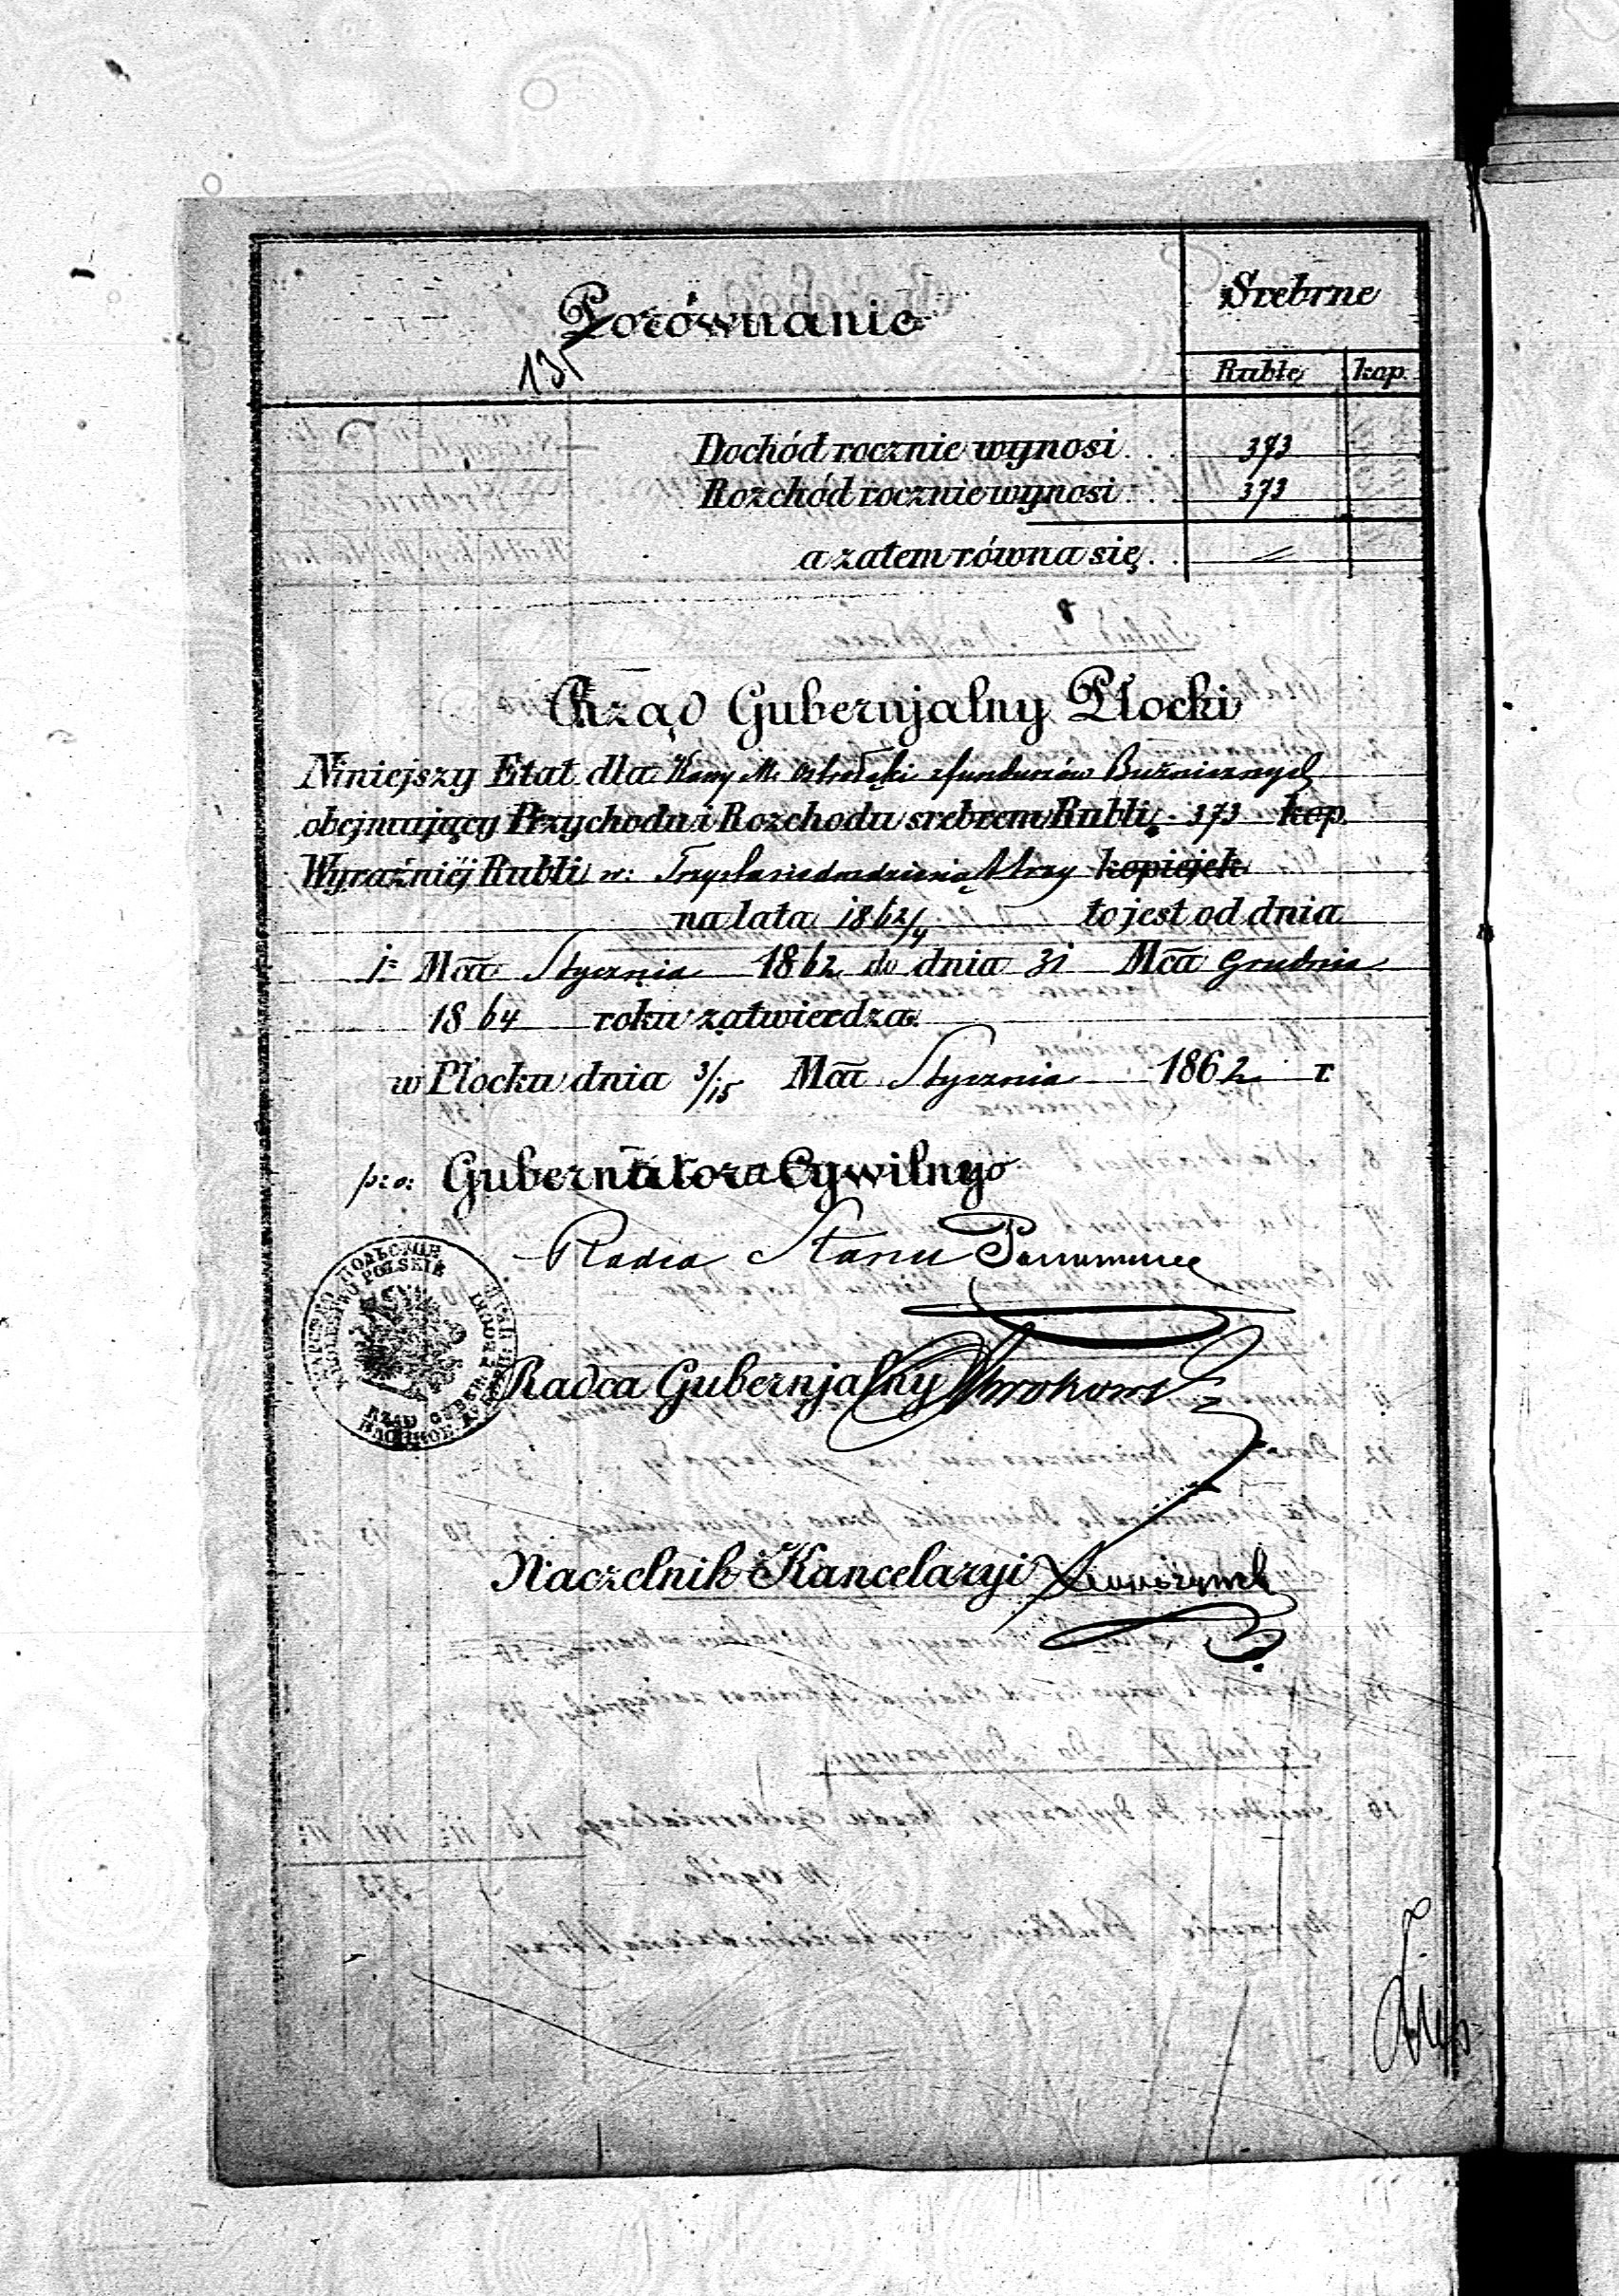 Porównanie
Srebrne
135
Ruble kop.
Dochód rocznie wynosi . . 373
Rozchód rocznie wynosi . . 373
a zatem równa się . . =
Rząd Gubernjalny Płocki
Niniejszy Etat dla Kassy M. Ostrołęki z funduszów Bużnicznych
obejmujący Przychodu i Rozchodu srebrem Rubli 373 kop.
Wyraźniej Rubli sr: Trzysta siedmdziesiąt trzy kopiejek
na lata 1862/4 to jest od dnia
1° Mca Stycznia 1862 do dnia 31 Mca Grudnia
1864 roku zatwierdza.
w Płocku dnia 3/15 Mca Stycznia 1862 r.
pro: Gubernatora Cywilnyo
Radca Stanu
KRÓLESTWO POLSKIE
RZĄD GUBER
Radca Gubernjalny
Naczelnik Kancelaryi